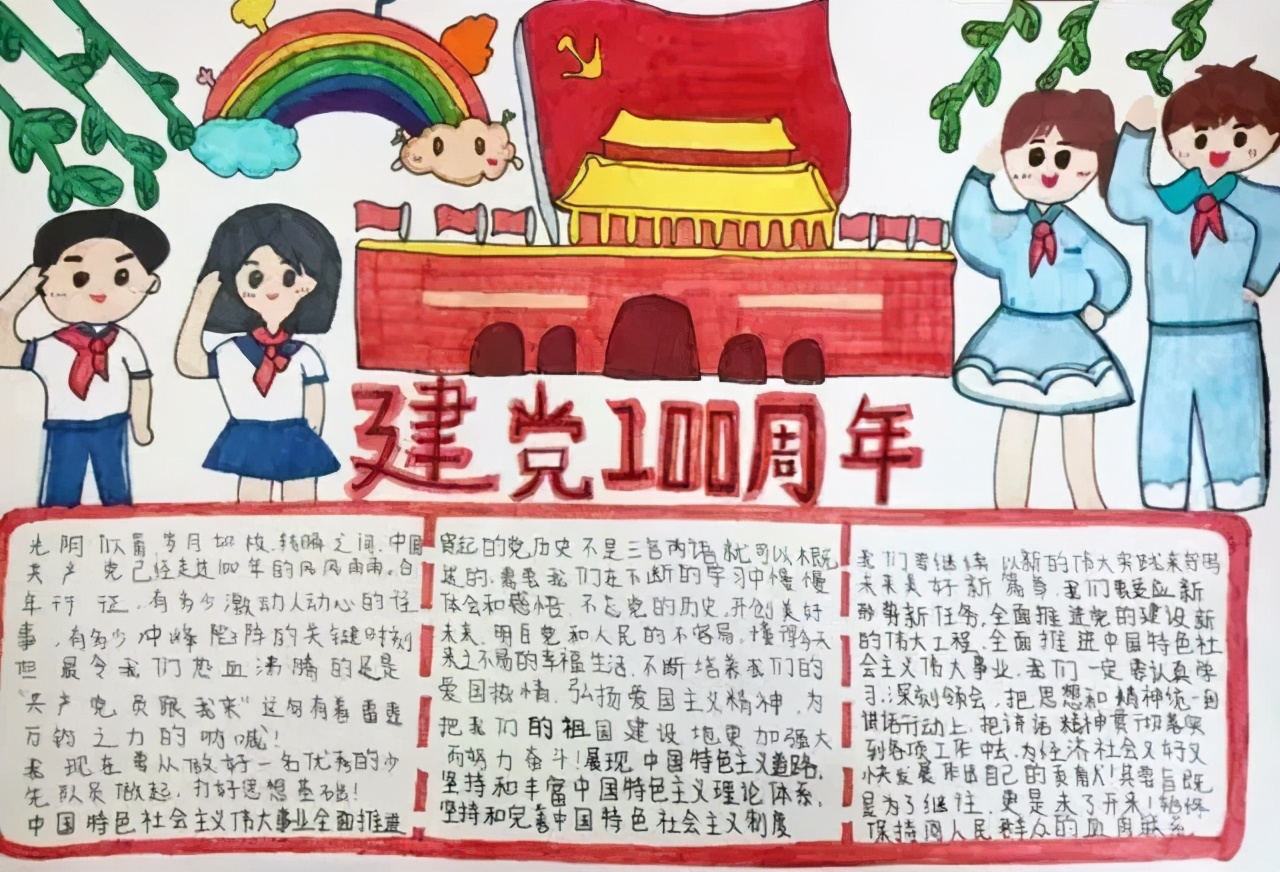 建党100周年
光阴似箭岁月如梭,转瞬之间,中国
共产党已经走过100年的风风雨雨,百
年行征,有多少激动人动心的往
事,有多少冲峰陷阵的关键时刻
但最令我们热血沸腾的还是
"共产党员跟我来"这句有着雷霆
万钧之力的呐喊!
我现在要从做好一名优秀的少
先队员做起,打好思想基础!
中国特色社会主义伟大事业全面推进
起的党历史不是三言两语就可以概
述的,需要我们在不断的学习中慢慢
体会和感悟.不忘党的历史,开创美好
未来,明白党和人民的不容易,懂得今天
来之不易的幸福生活,不断培养我们的
爱国热情,弘扬爱国主义精神,为
把我们的祖国建设地更加强大
而努力奋斗!展现中国特色主义道路,
坚持和丰富中国特色主义理论体系,
坚持和完善中国特色社会主义制度
我们要继续以新的伟大实践来书写
未来美好新篇章,我们要适应新
形势新任务,全面推进党的建设新
的伟大工程,全面推进中国特色社
会主义伟大事业,我们一定要认真学
习,深刻领会,把思想和精神统一到
讲话行动上,把讲话精神贯彻落实
到各项工作中去,为经济社会又好又
快发展作出自己的贡献!其要旨既
是为了继往,更是未了开来!始终
保持同人民群众的血肉联系